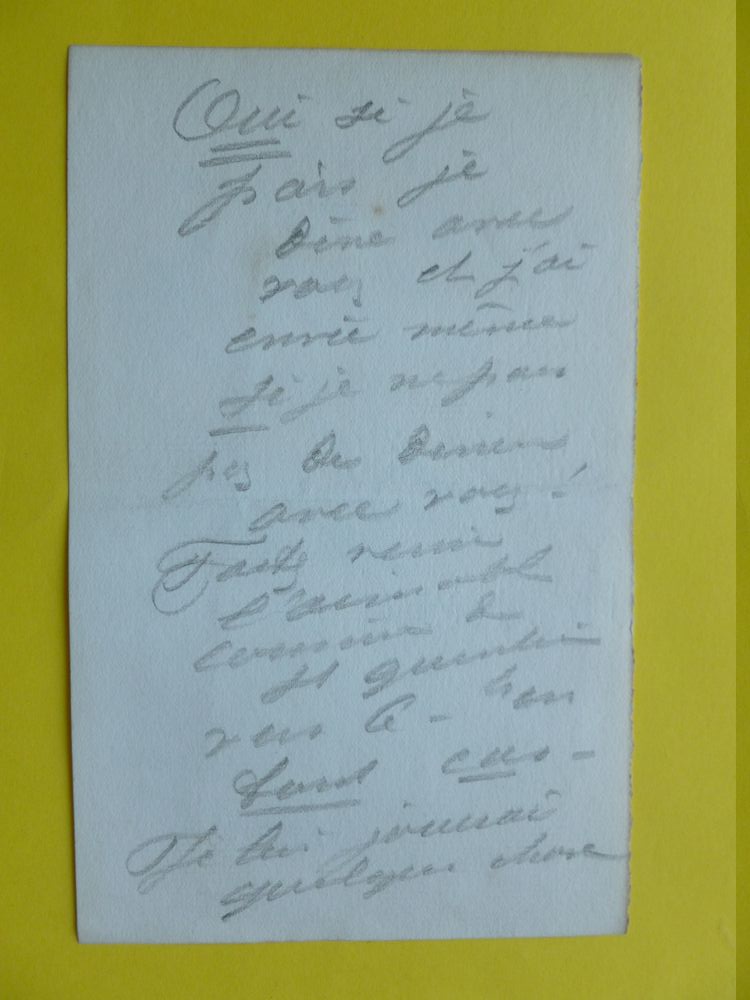 Oui si je
pars je
dîne avec
vous et j'ai
envie même
si je ne pars
pas de diner
avec vous !
Faites venir
l'aimable
cousine de
St Quentin
vers 6 - h en
tout cas -
Je lui jouerai
quelque chose